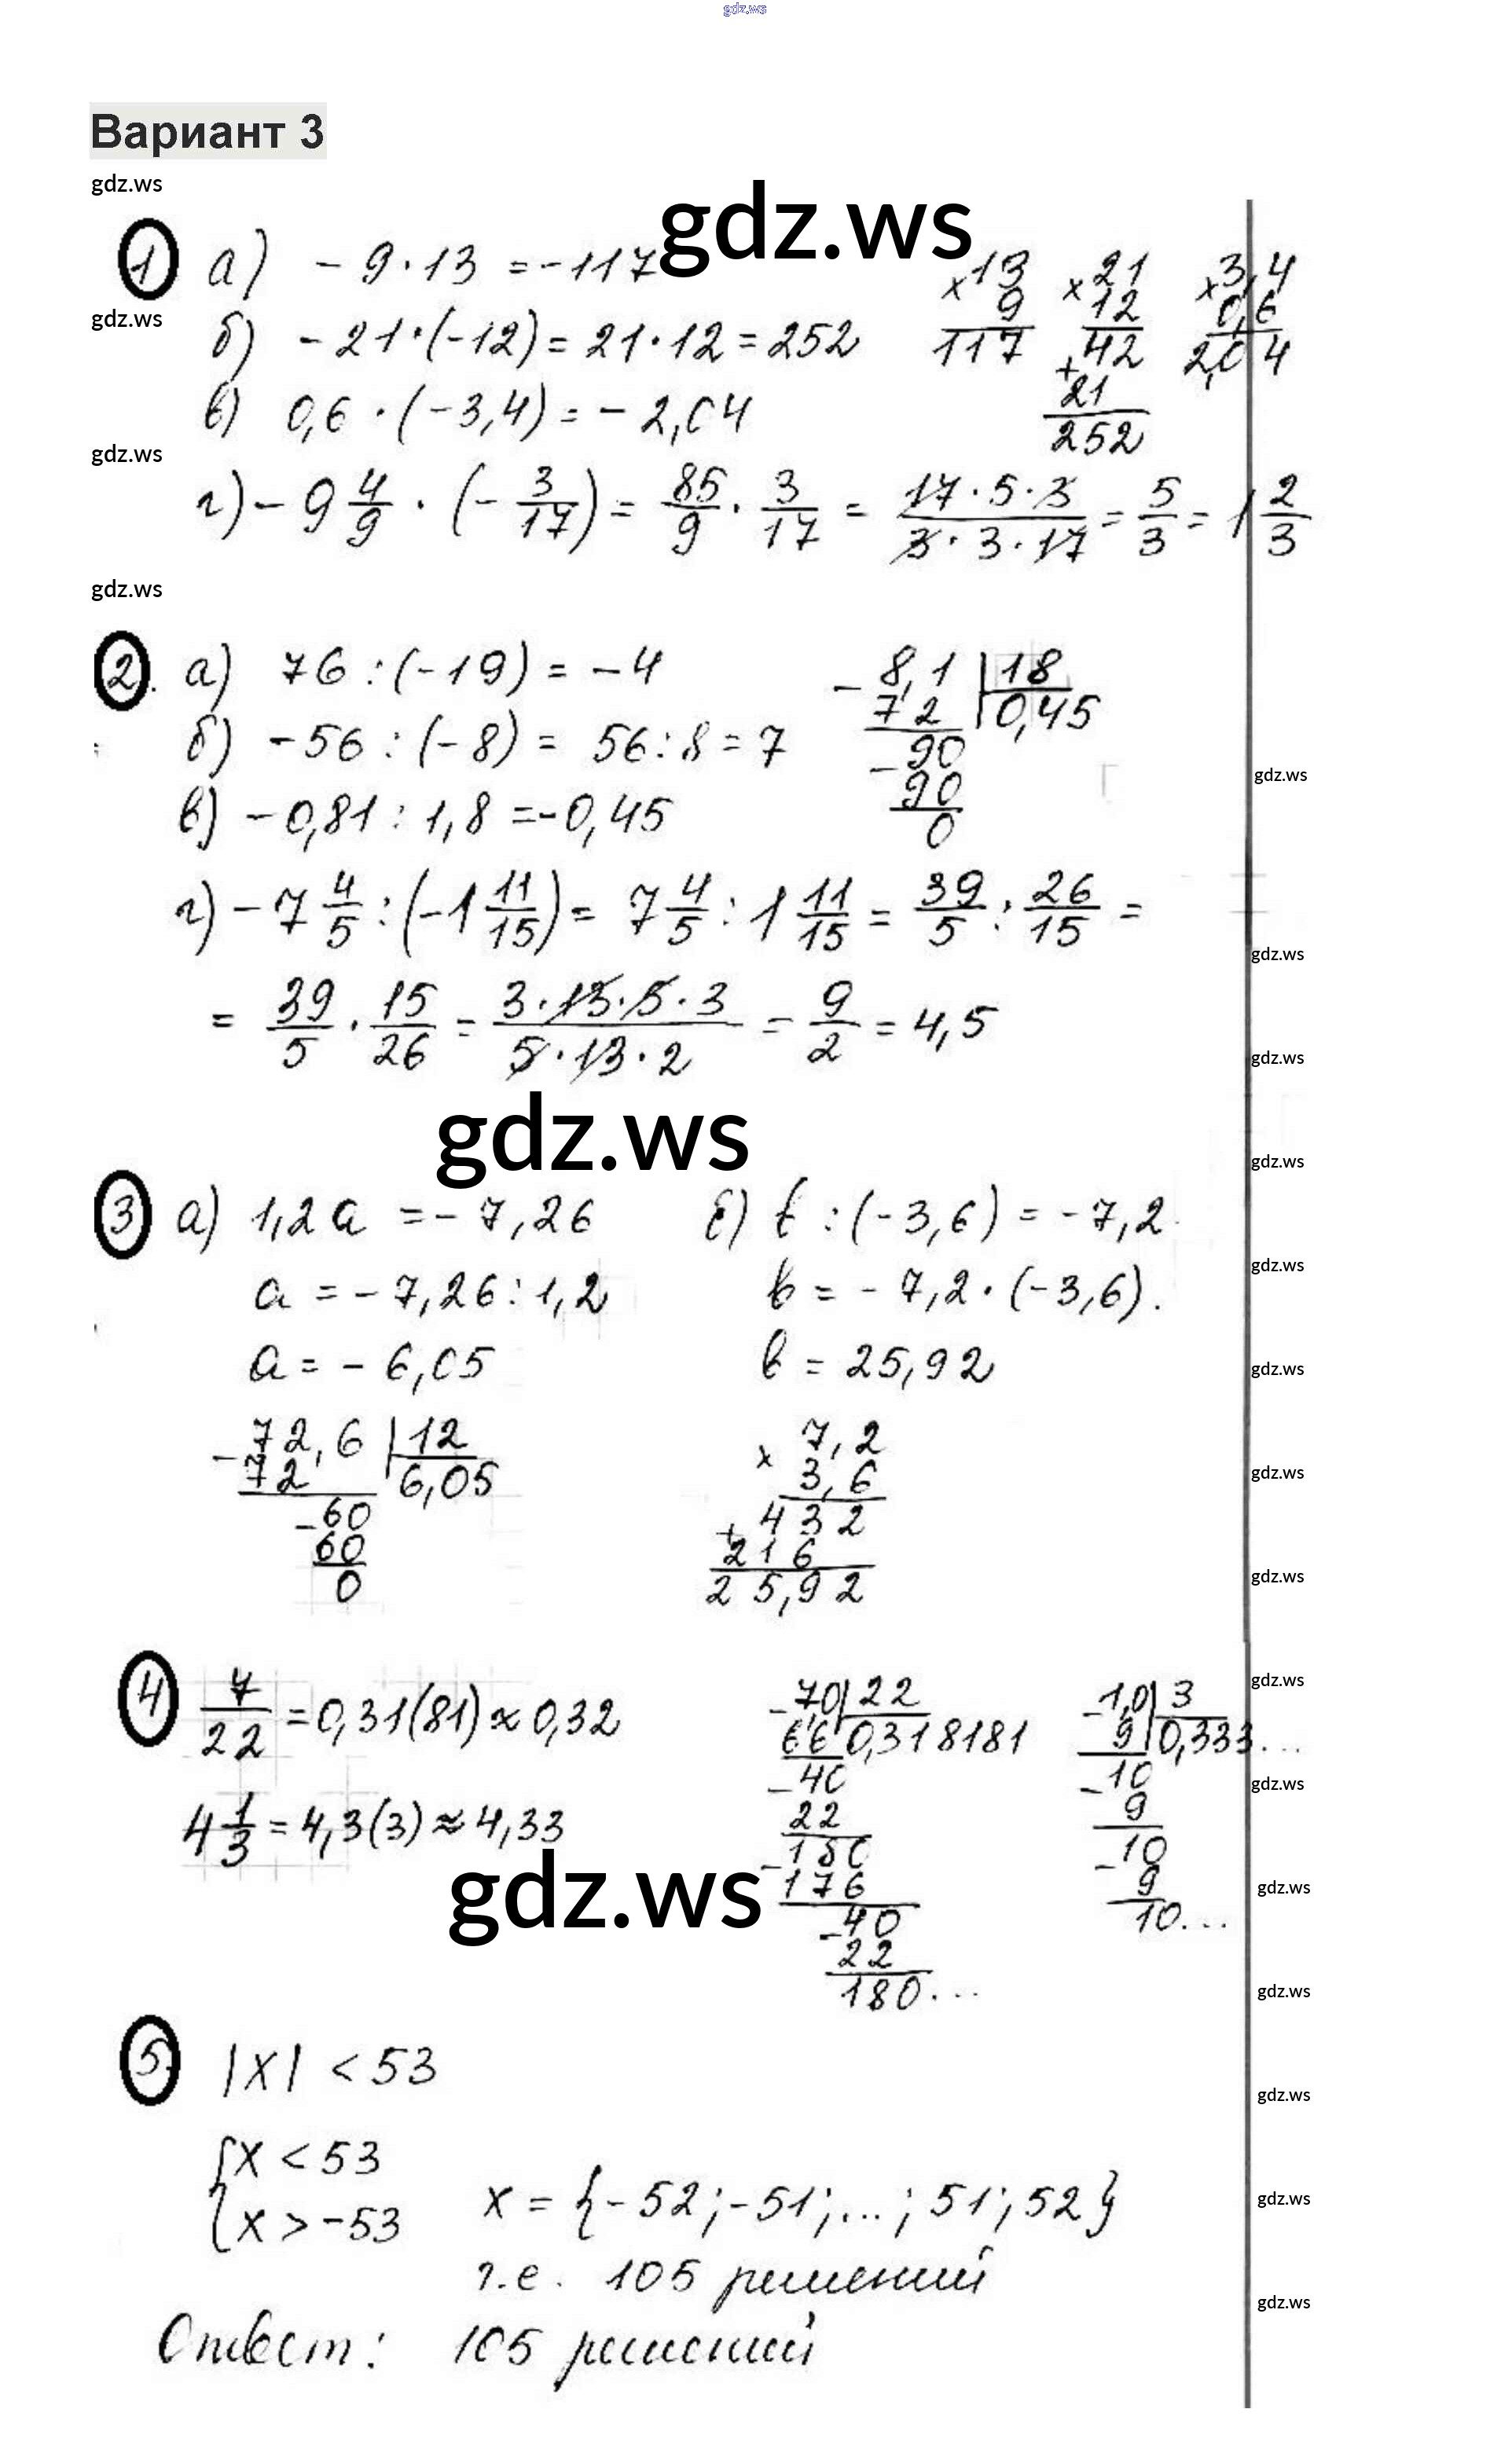 gdz.ws
Вариант 3
gdz.ws
gdz.ws
1 а) - 9 · 13 = -117
×13 9 117
×21 12 +42 21 252
×3,4 0,6 2,04
gdz.ws
б) - 21 · (-12) = 21 · 12 = 252
в) 0,6 · (-3,4) = - 2,04
gdz.ws
г) - 9 4/9 · (- 3/17) = 85/9 · 3/17 = 17·5·3/3·3·17 = 5/3 = 1 2/3
gdz.ws
2. а) 76 : (-19) = -4
- 8,1 | 18
7 2 0,45
- 90
90
0
б) -56 : (-8) = 56 : 8 = 7
gdz.ws
в) - 0,81 : 1,8 = -0,45
г) - 7 4/5 : (-1 11/15) = 7 4/5 : 1 11/15 = 39/5 : 26/15 =
gdz.ws
= 39/5 · 15/26 = 3·13·5·3/5·13·2 = 9/2 = 4,5
gdz.ws
gdz.ws
gdz.ws
3 а) 1,2a = - 7,26
a = - 7,26 : 1,2
a = - 6,05
- 72,6 | 12
72 6,05
-60
60
0
б) b : (-3,6) = - 7,2
b = - 7,2 · (-3,6).
b = 25,92
× 7,2
3,6
+ 432
216
25,92
gdz.ws
gdz.ws
gdz.ws
gdz.ws
4 7/22 = 0,31(81) ≈ 0,32
4 1/3 = 4,3(3) ≈ 4,33
- 70 | 22
66 0,318181
- 40
22
- 180
176
- 40
22
180...
- 1,0 | 3
9 0,333...
- 10
9
- 10
9
10...
gdz.ws
gdz.ws
gdz.ws
gdz.ws
gdz.ws
5. |x| < 53
gdz.ws
{x < 53
{x > -53
x = {- 52; -51; ...; 51; 52}
gdz.ws
т.е. 105 решений
gdz.ws
Ответ: 105 решений